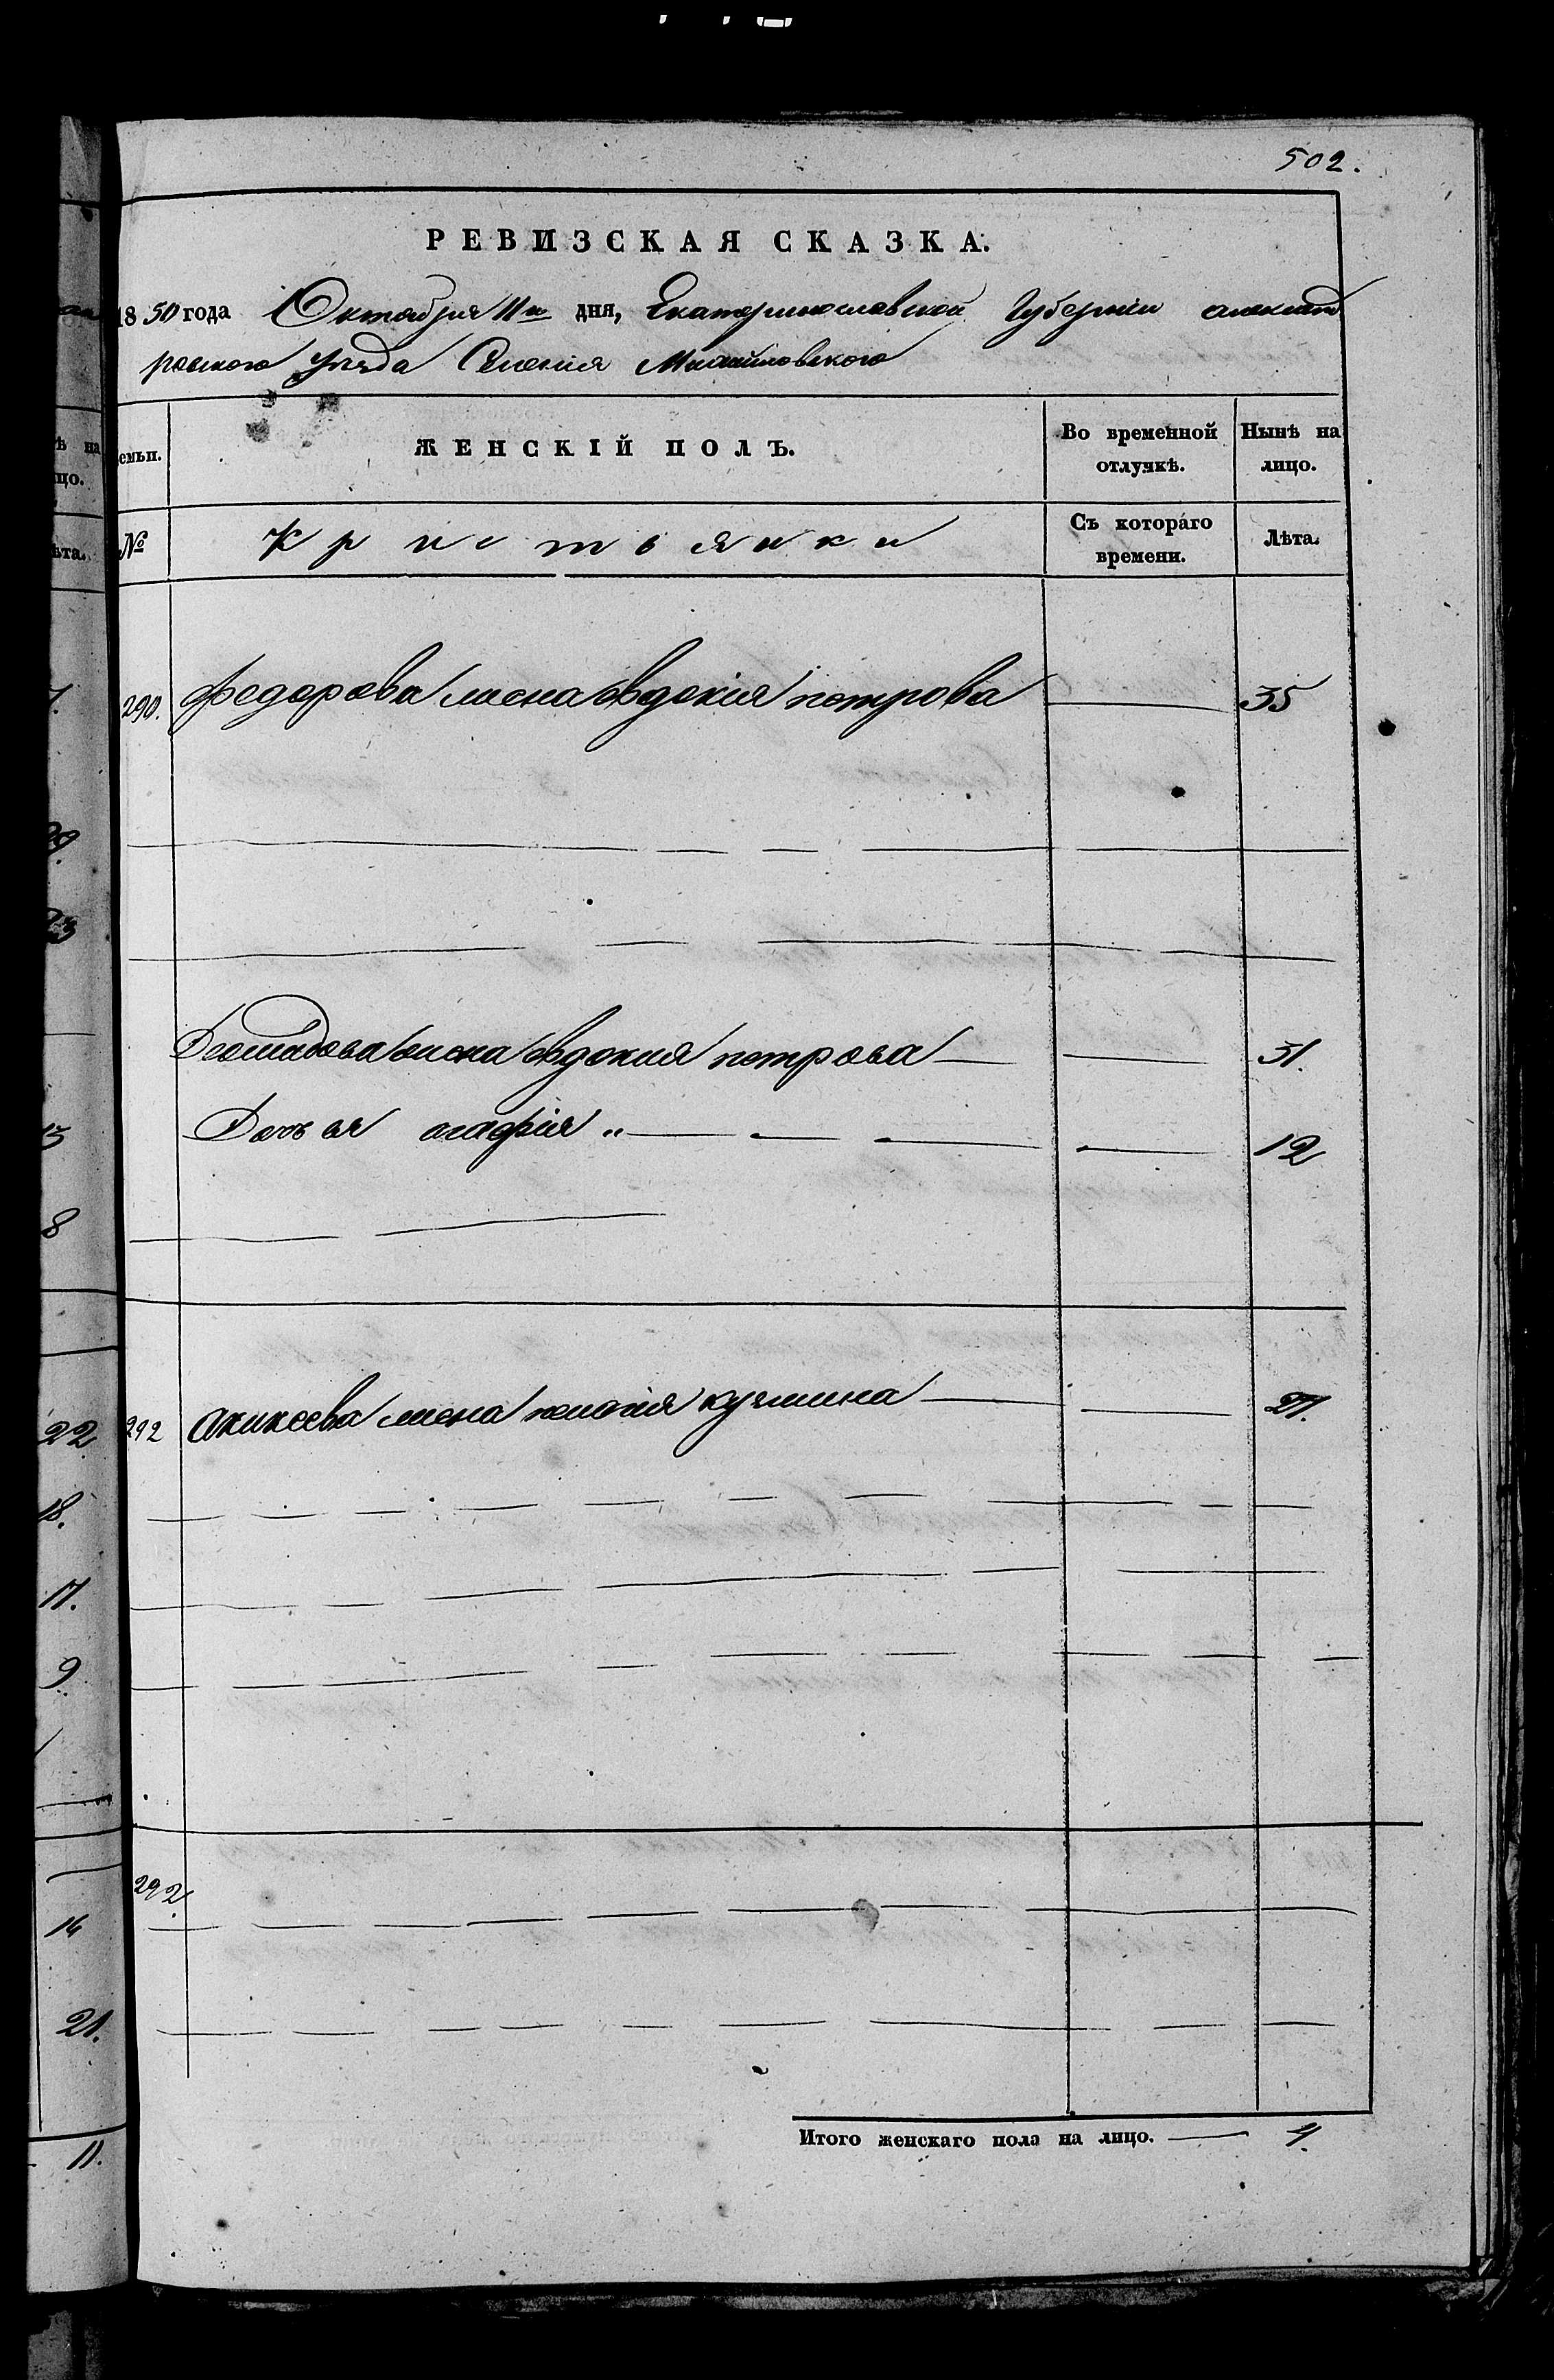 502.
РЕВИЗСКАЯ СКАЗКА.
1850 года Октября 11го дня, Екатеринославской Губернии александ
ровского уезда Селения Михайловского
емьи. ЖЕНСКІЙ ПОЛЪ. Во временной отлучкѣ. Нынѣ на лицо.
№ Крестьянки Съ котораго времени. Лѣта.
290. Федорова жена евдокия петрова 35
жена евдокия петрова 31.
Дочь ея агафия „ 12
292 жена 27.
292.
Итого женскаго пола на лицо. 4.
ѣ на
цо.
ѣта.
13
8
22
18.
17.
9
16
21.
11.